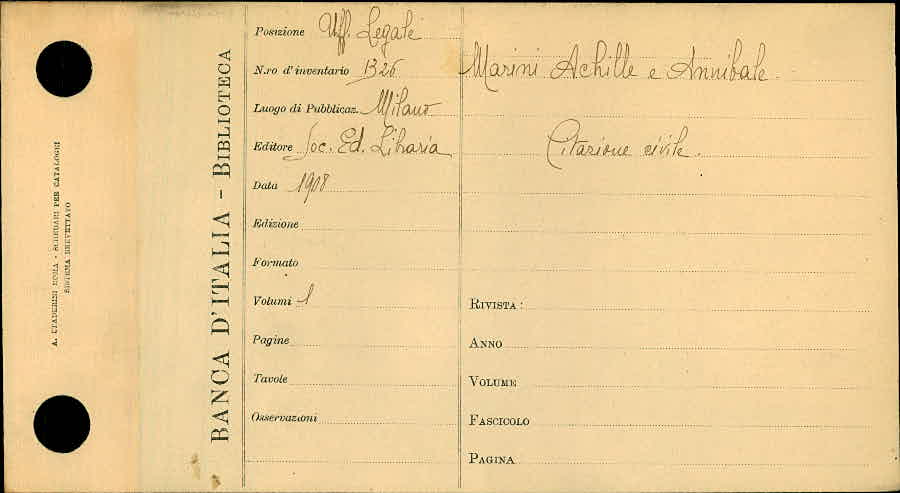 A. STADERINI ROMA - SCHEDARI PER CATALOGHI
SISTEMA BREVETTATO
BANCA D'ITALIA - BIBLIOTECA
Posizione Uff. Legale
N.ro d'inventario 1326
Luogo di Pubblicaz. Milano
Editore Soc. Ed. Libraria
Data 1908
Edizione
Formato
Volumi 1
Pagine
Tavole
Osservazioni
Marini Achille e Annibale
Citazione civile.
RIVISTA :
ANNO
VOLUME
FASCICOLO
PAGINA